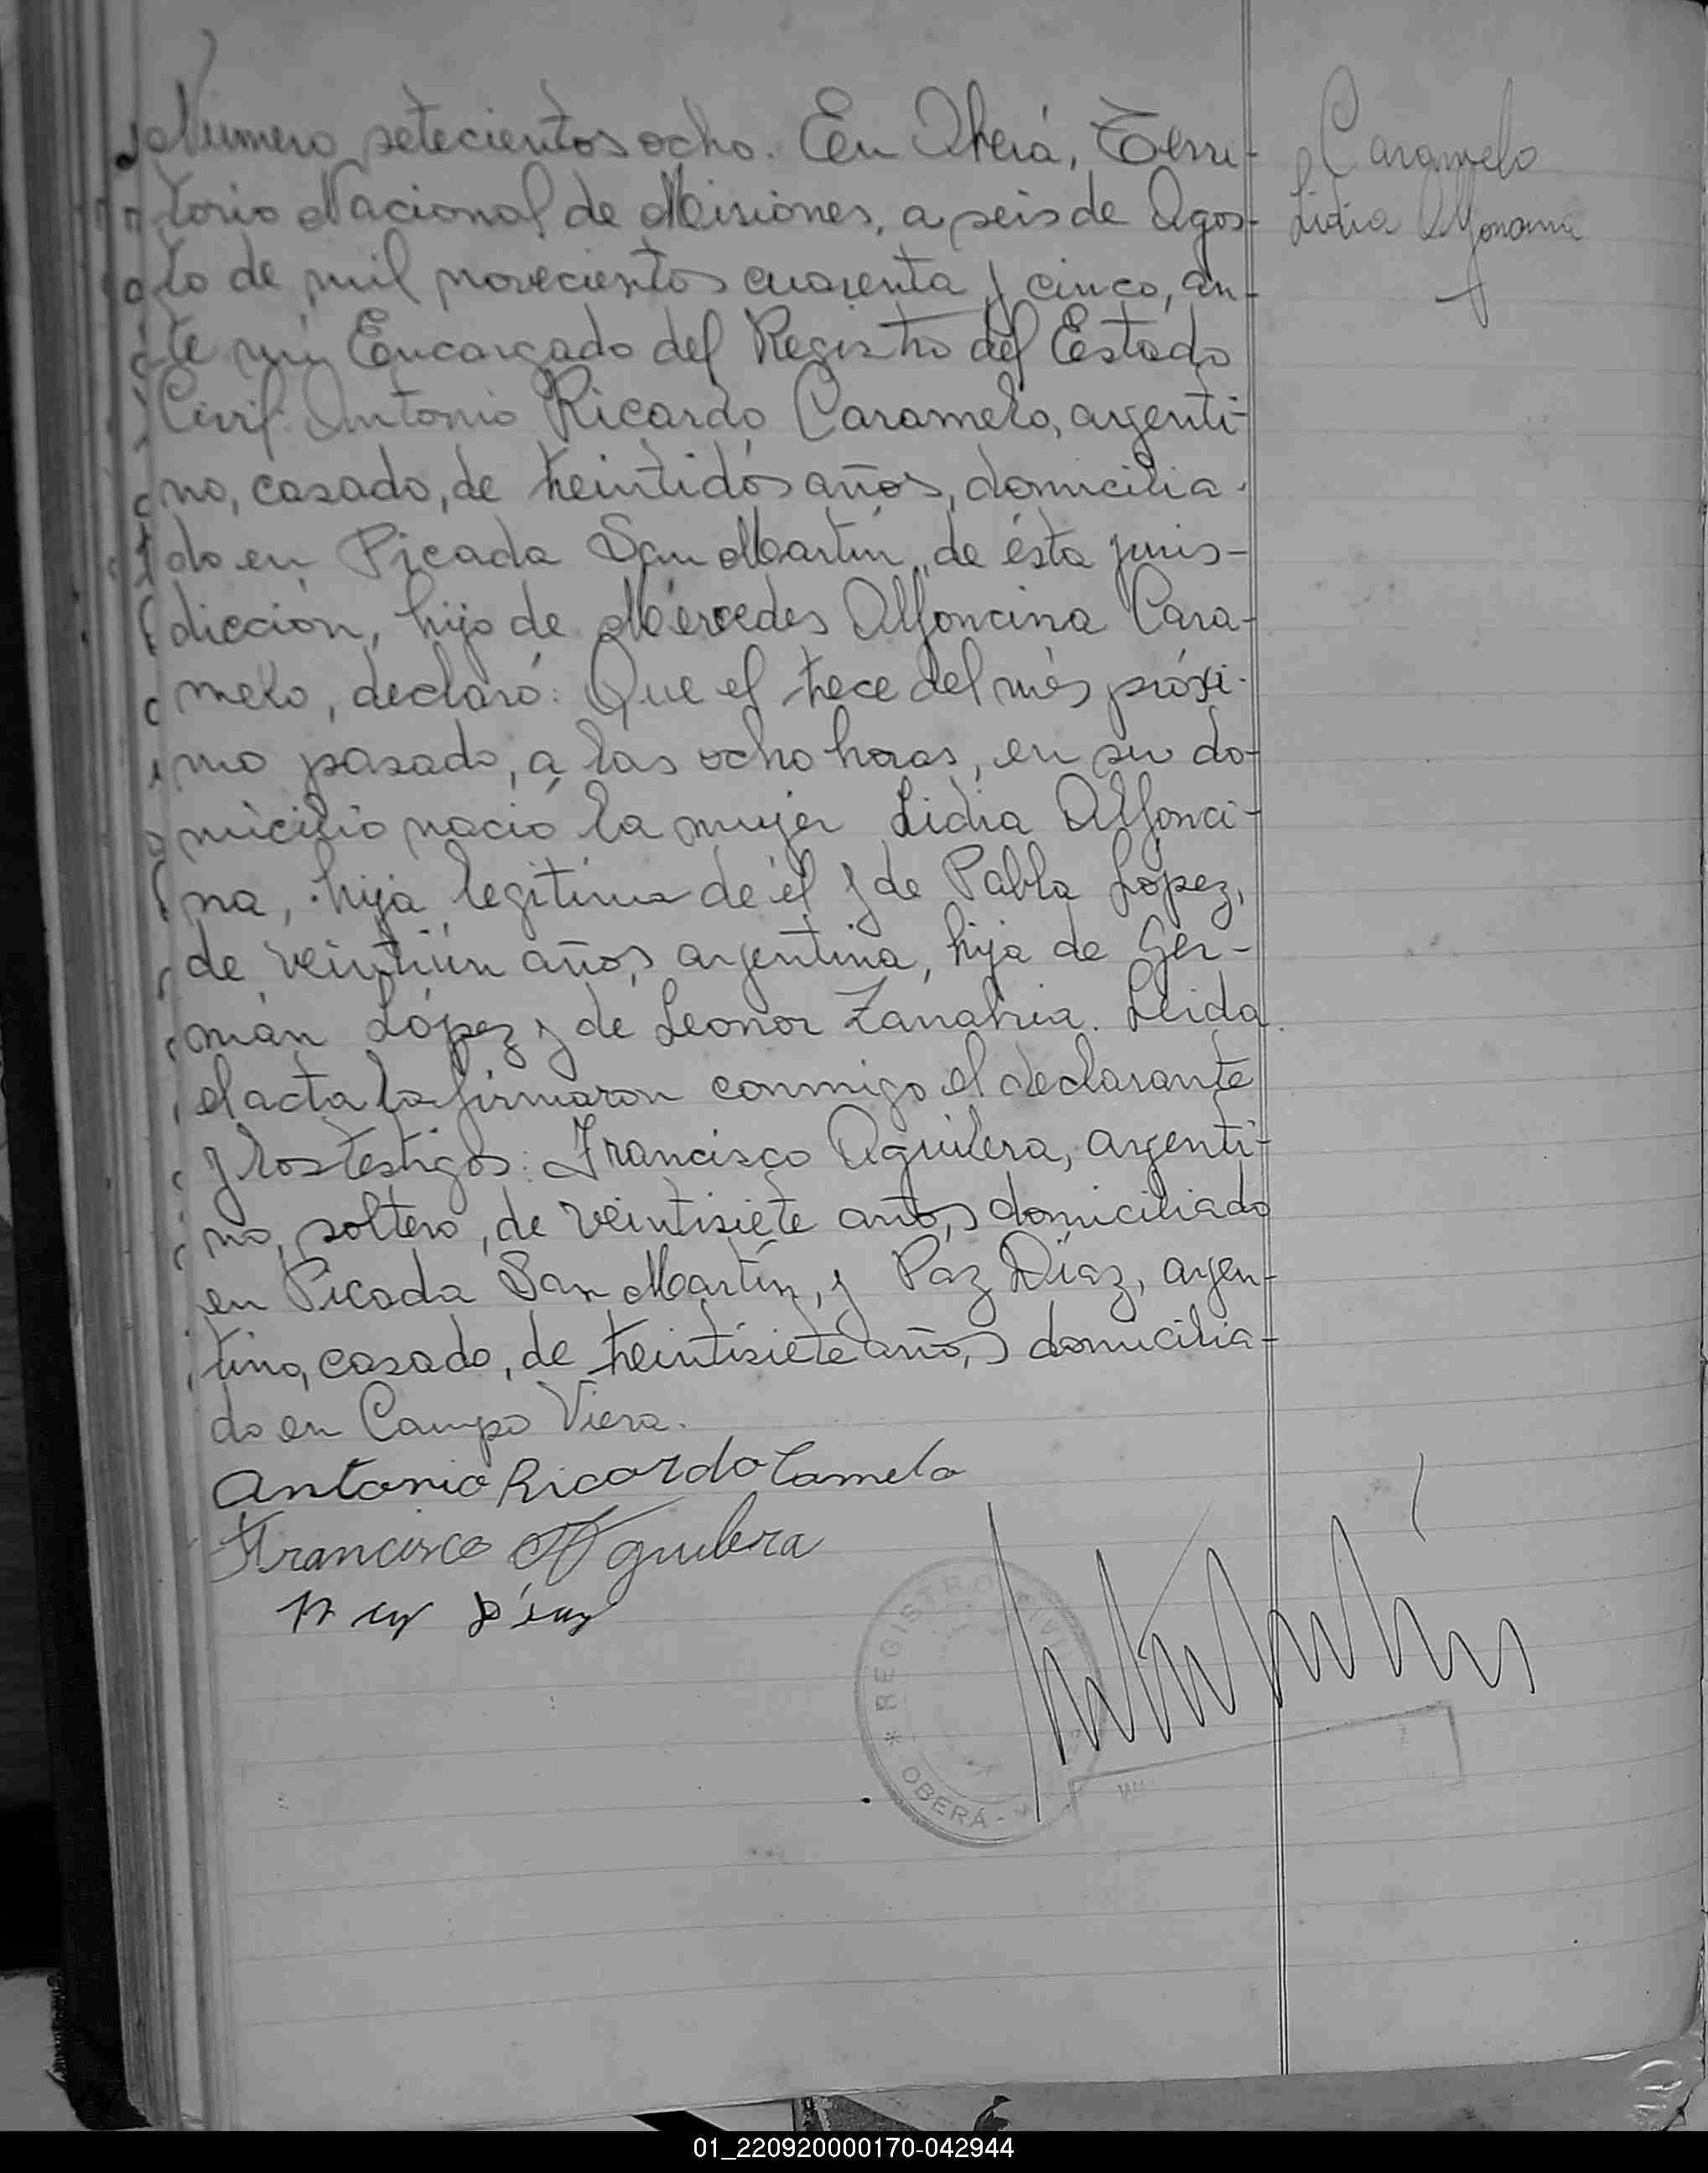 Número setecientos ocho. En Oberá, Terri-
torio Nacional de Misiones, a seis de Agos-
to de mil novecientos cuarenta y cinco, an-
te mí Encargado del Registro del Estado
Civil: Antonio Ricardo Caramelo, argenti-
no, casado, de treintidós años, domicilia-
do en Picada San Martín, de ésta juris-
dicción, hijo de Mercedes Alfoncina Cara-
melo, declaró: Que el trece del més próxi-
mo pasado, a las ocho horas, en su do-
micilio nació la mujer Lidia Alfonci-
na, hija legítima de él y de Pabla López,
de veintiún años, argentina, hija de Ger-
mán López y de Leonor Zanabria. Leida
el acta la firmaron conmigo el declarante
y los testigos: Francisco Aguilera, argenti-
no, soltero, de veintisiete años, domiciliado
en Picada San Martín, y Paz Díaz, argen-
tino, casado, de treintisiete años, domicilia-
do en Campo Viera.
Caramelo
Lidia Alfoncina
Antonio Ricardo Camelo
Francisco Aguilera
Paz Díaz
* REGISTRO CIVIL
OBERÁ -
01_220920000170-042944